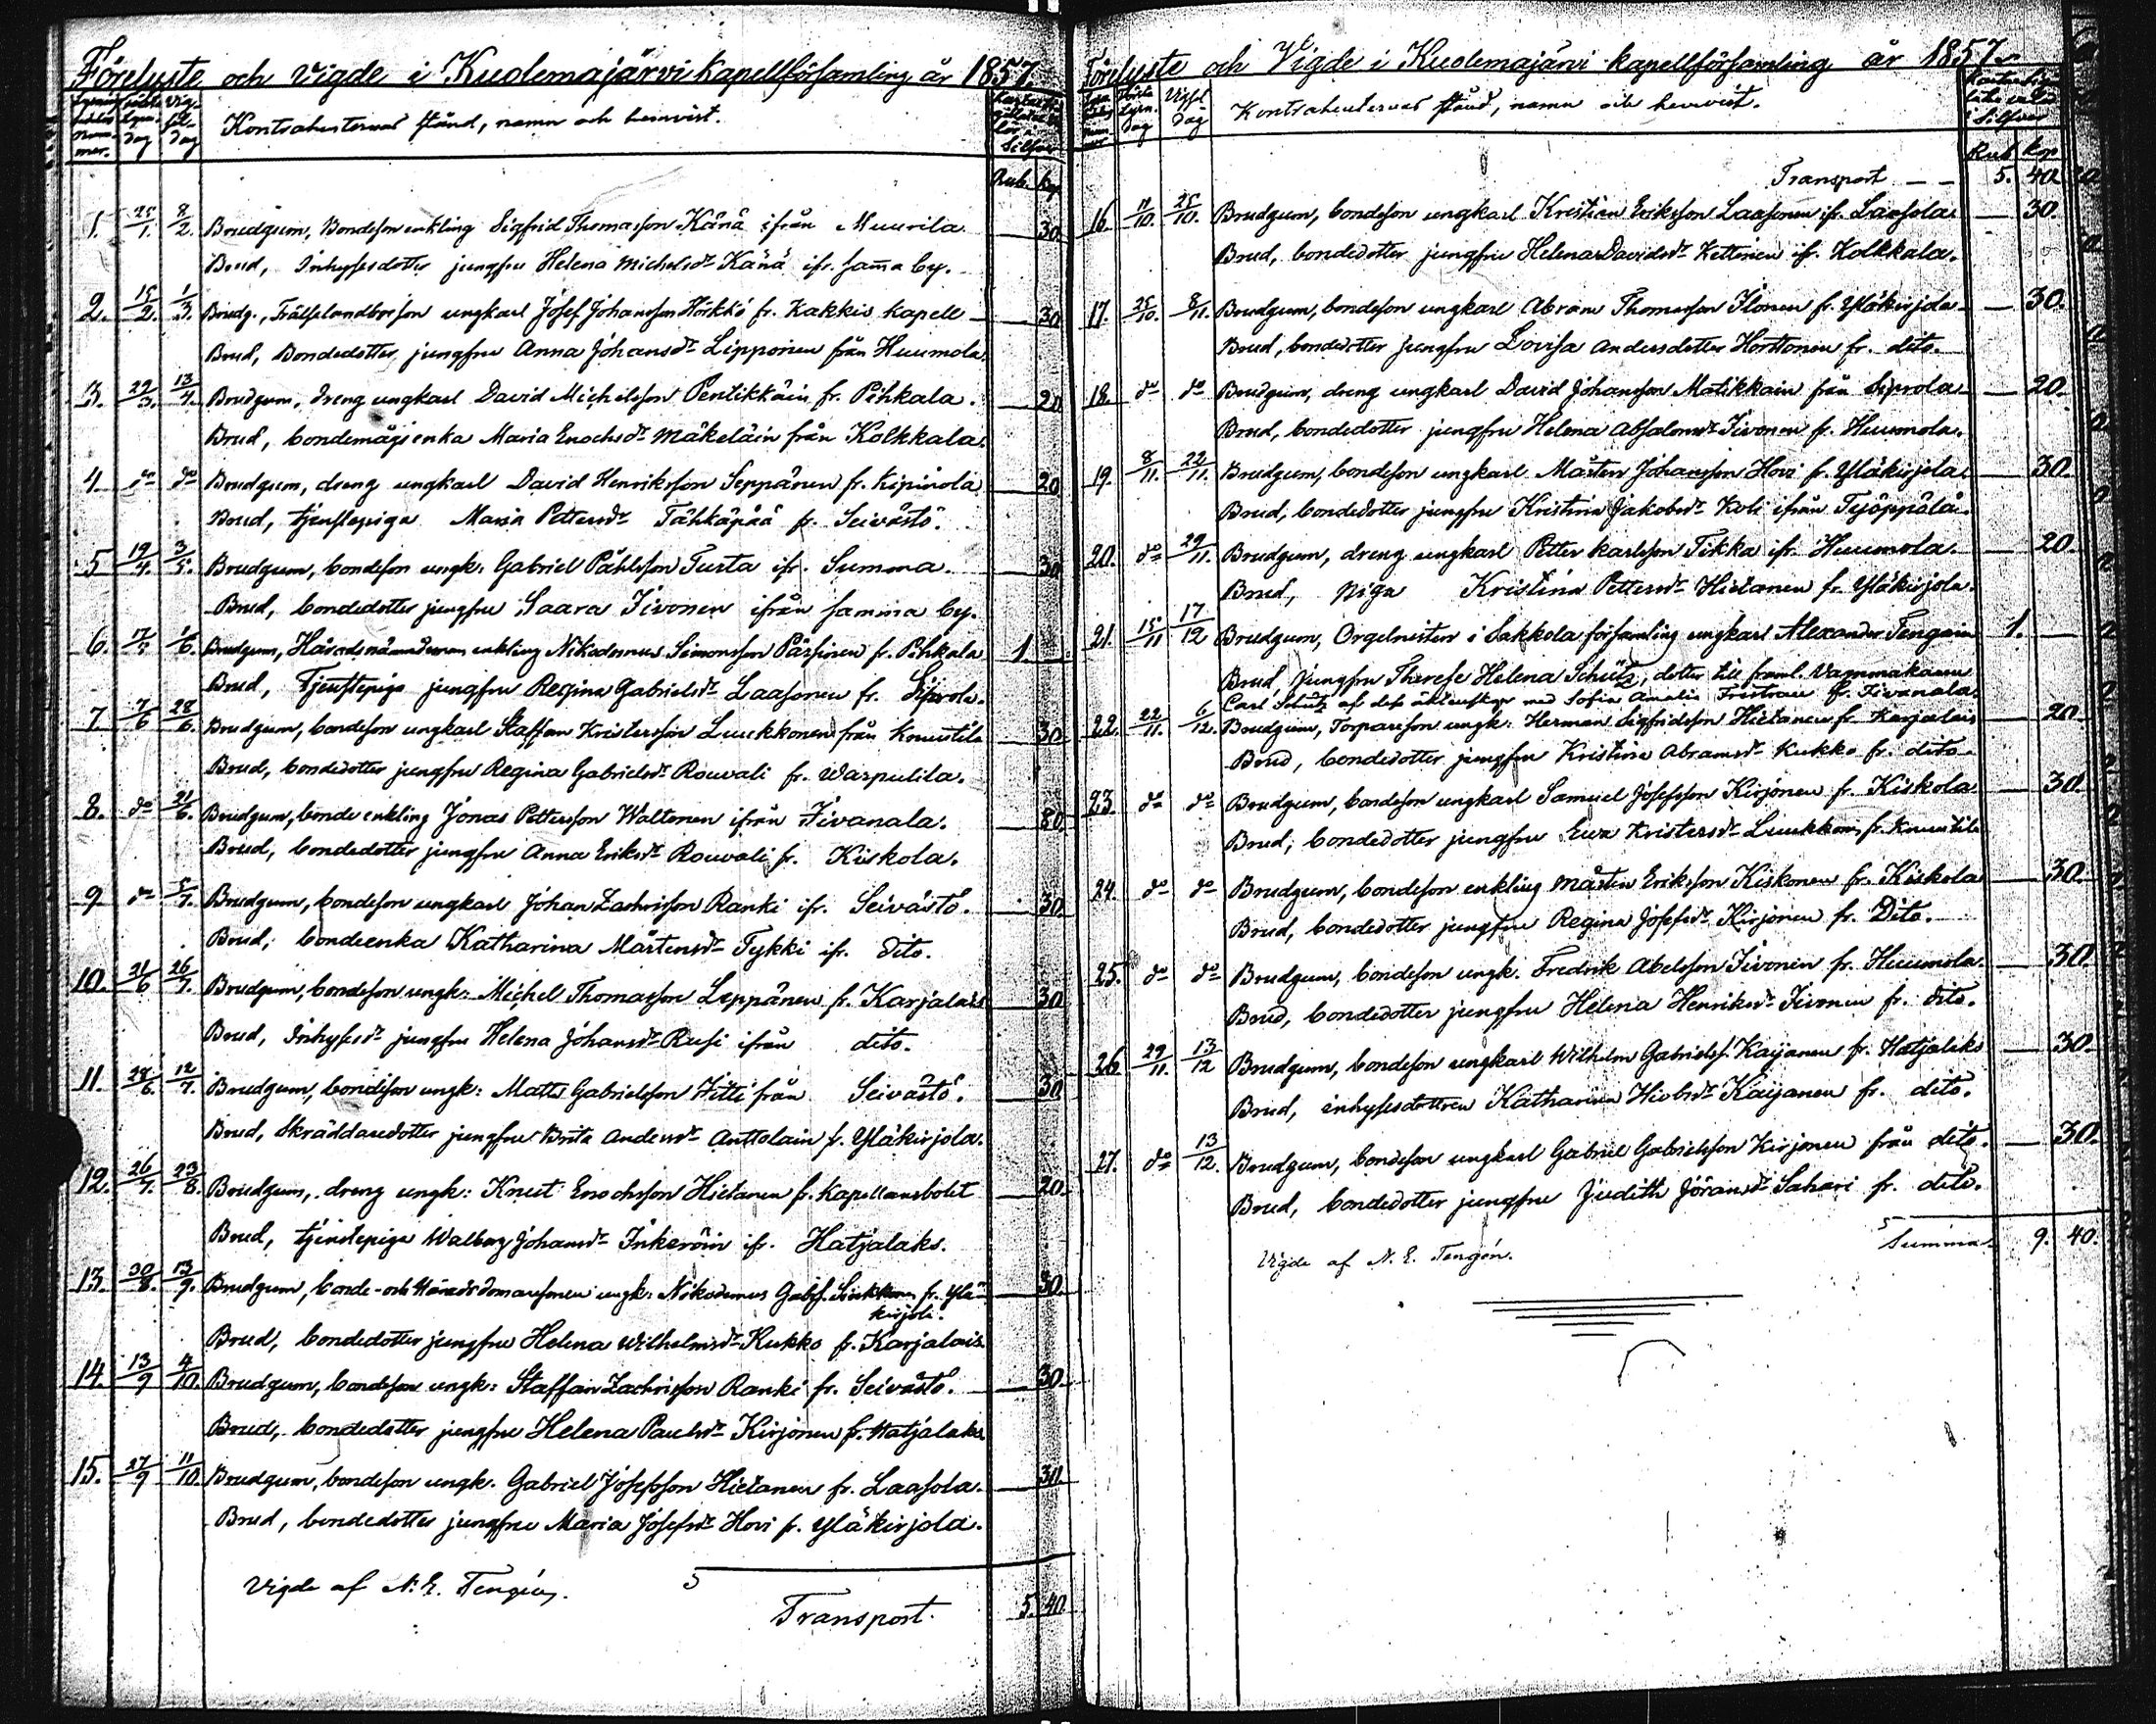 Förelyste och vigde i Kuolemajärvi kapellförsamling år 1857
dag dag Kontrahenternas stånd, namn och hemvist. Silfver
Rub. kop.
1. 25/1. 8/2. Brudgum, Bondeson enkling Sigfrid Thomasson Känä ifrån Muurila 30.
Brud, Inhysesdotter jungfru Helena Michelsdr Känä ifr. samma by.
2. 15/2. 1/3. Brudg., Frälselandborson ungkarl Josef Johansson Hörkkö fr. Kakkis kapell 30
Brud, Bondedotter jungfru Anna Johansdr Lipponen från Huumola.
3. 22/3. 13/4. Brudgum, dreng ungkarl David Michelsson Pentikkäin fr. Pihkala. 20
Brud, bondemågsenka Maria Enochsdr Mäkeläin från Kolkkala.
4. do do Brudgum, dreng ungkarl David Henriksson Seppänen fr. Kipinola 20
Brud, tjenstepiga Maria Pettersdr Tähkäpää fr. Seivästö.
5 19/4. 3/5. Brudgum, bondeson ungk: Gabriel Påhlsson Turta ifr. Summa. 30
Brud, bondedotter jungfru Saara Iivonen ifrån samma by.
6. 17/5 1/6. Brudgum, Häradsnämndeman enkling Nikodemus Simonsson Pärssinen fr. Pihkala 1.
Brud, Tjenstepiga jungfru Regina Gabrielsdr Laasonen fr. Siprola.
7 7/6 28/6. Brudgum, bondeson ungkarl Staffan Kristersson Luukkonen från Kmuutila 30.
Brud, bondedotter jungfru Regina Gabrielsdr Rouvali fr. Warpulila.
8. do 21/6. Brudgum, bonde enkling Jonas Pettersson Waltonen ifrån Iivanala. 80.
Brud, bondedotter jungfru Anna Eriksdr Rouvali fr. Kiskola.
9 do 5/7. Brudgum, bondeson ungkarl Johan Zachrisson Ranki ifr. Seivästö. 30.
Brud, bondeenka Katharina Mårtensdr Tykki ifr. dito.
10. 21/6 26/7. Brudgum, bondeson ungk: Michel Thomasson Leppänen fr. Karjalais 30
Brud, Inhysesdr jungfru Helena Johansdr Rusi ifrån dito.
11. 28/6. 12/7. Brudgum, bondeson ungk: Matts Gabrielsson Zitti från Seivästö. 30
Brud, Skräddaredotter jungfru Brita Andersdr Anttolain fr. Yläkirjola.
12. 26/7. 23/8. Brudgum, dreng ungk: Knut Enochsson Hietanen fr. Kapellansbolet 20.
Brud, tjenstepiga Walborg Johansdr Inkeröin ifr. Hatjalaks.
13. 30/8. 13/9. Brudgum, bonde- och Häradsdomaresonen ungk: Nikodemus Gabs. fr. Ylä- 30.
kirjola.
Brud, bondedotter jungfru Helena Wilhelmsdr Kukko fr. Karjalais.
14. 13/9 4/10. Brudgum, bondeson ungk: Staffan Zachrisson Ranki fr. Seivästö. 30.
Brud, bondedotter jungfru Helena Paulsdr Kirjonen fr. Hatjalaks.
15. 27/9 11/10. Brudgum, bondeson ungk. Gabriel Josefsson Hietanen fr. Laasola. 30.
Brud, bondedotter jungfru Maria Josefsdr Hovi fr. Yläkirjola.
Vigde af N. E. Tengén.
Transport. 5. 40.
Förelyste och Vigde i Kuolemajärvi kapellförsamling år 1857.
dag dag Kontrahenternas stånd, namn och hemvist. Silfver
Rub kop
Transport — — 5. 40.
16. 11/10. 25/10. Brudgum, bondeson ungkarl Kristian Eriksson Laasonen ifr. Laasola. 30.
Brud, bondedotter jungfru Helena Davidsdr Kettunen ifr. Kolkkala.
17. 25/10. 8/11. Brudgum, bondeson ungkarl Abram Thomasson Ilonen fr. Yläkirjola 30.
Brud, bondedotter jungfru Lovisa Andersdotter Horttonen fr. dito.
18. do do Brudgum, dreng ungkarl David Johansson Matikkain från Siprola 20.
Brud, bondedotter jungfru Helena Absalomsdr Iivonen fr. Huumola.
19. 8/11. 22/11. Brudgum, bondeson ungkarl Mårten Johansson Hovi fr. Yläkirjola. 30.
Brud, bondedotter jungfru Kristina Jakobsdr Koli ifrån Työppölä.
20. do 29/11. Brudgum, dreng ungkarl Petter Karlsson Tikka ifr. Huumola. 20
Brud, piga Kristina Pettersdr Hietanen fr. Yläkirjola.
21. 15/11 17/12 Brudgum, Orgelnisten i Sakkola församling ungkarl Alexander Tengén 1.
Brud, jungfru Therese Helena Schütz, dotter till framl. Vammakaren
Carl Schütz af dess äktenskap med Sofia Amalia fr. Iivanala.
22. 22/11. 6/12. Brudgum, Torpareson ungk: Herman Sigfridsson Hietanen fr. Karjalais 20
Brud, bondedotter jungfru Kristina Abramsdr Kukko fr. dito.
23. do do Brudgum, bondeson ungkarl Samuel Josefsson Kirjonen fr. Kiskola 30.
Brud, bondedotter jungfru Ewa Kristersdr Luukkoin fr. Kmuutila
24. do do Brudgum, bondeson enkling Mårten Eriksson Kiskonen fr. Kiskola 30.
Brud, bondedotter jungfru Regina Josefsdr Kirjonen fr. Dito.
25. do do Brudgum, bondeson ungk. Fredrik Abelsson Iivonen fr. Huumola. 30.
Brud, bondedotter jungfru Helena Henriksdr Iivonen fr. dito.
26. 29/11. 13/12 Brudgum, bondeson ungkarl Wilhelm Gabrielss. Kaijanen fr. Hatjalaks 30.
Brud, inhysesdottren Katharina Hiobsdr Kaijanen fr. dito.
27. do 13/12. Brudgum, bondeson ungkarl Gabriel Gabrielsson Kirjonen från dito. 30.
Brud, bondedotter jungfru Judith Göransdr Sahari fr. dito.
Summa. 9. 40.
Vigde af N. E. Tengén.